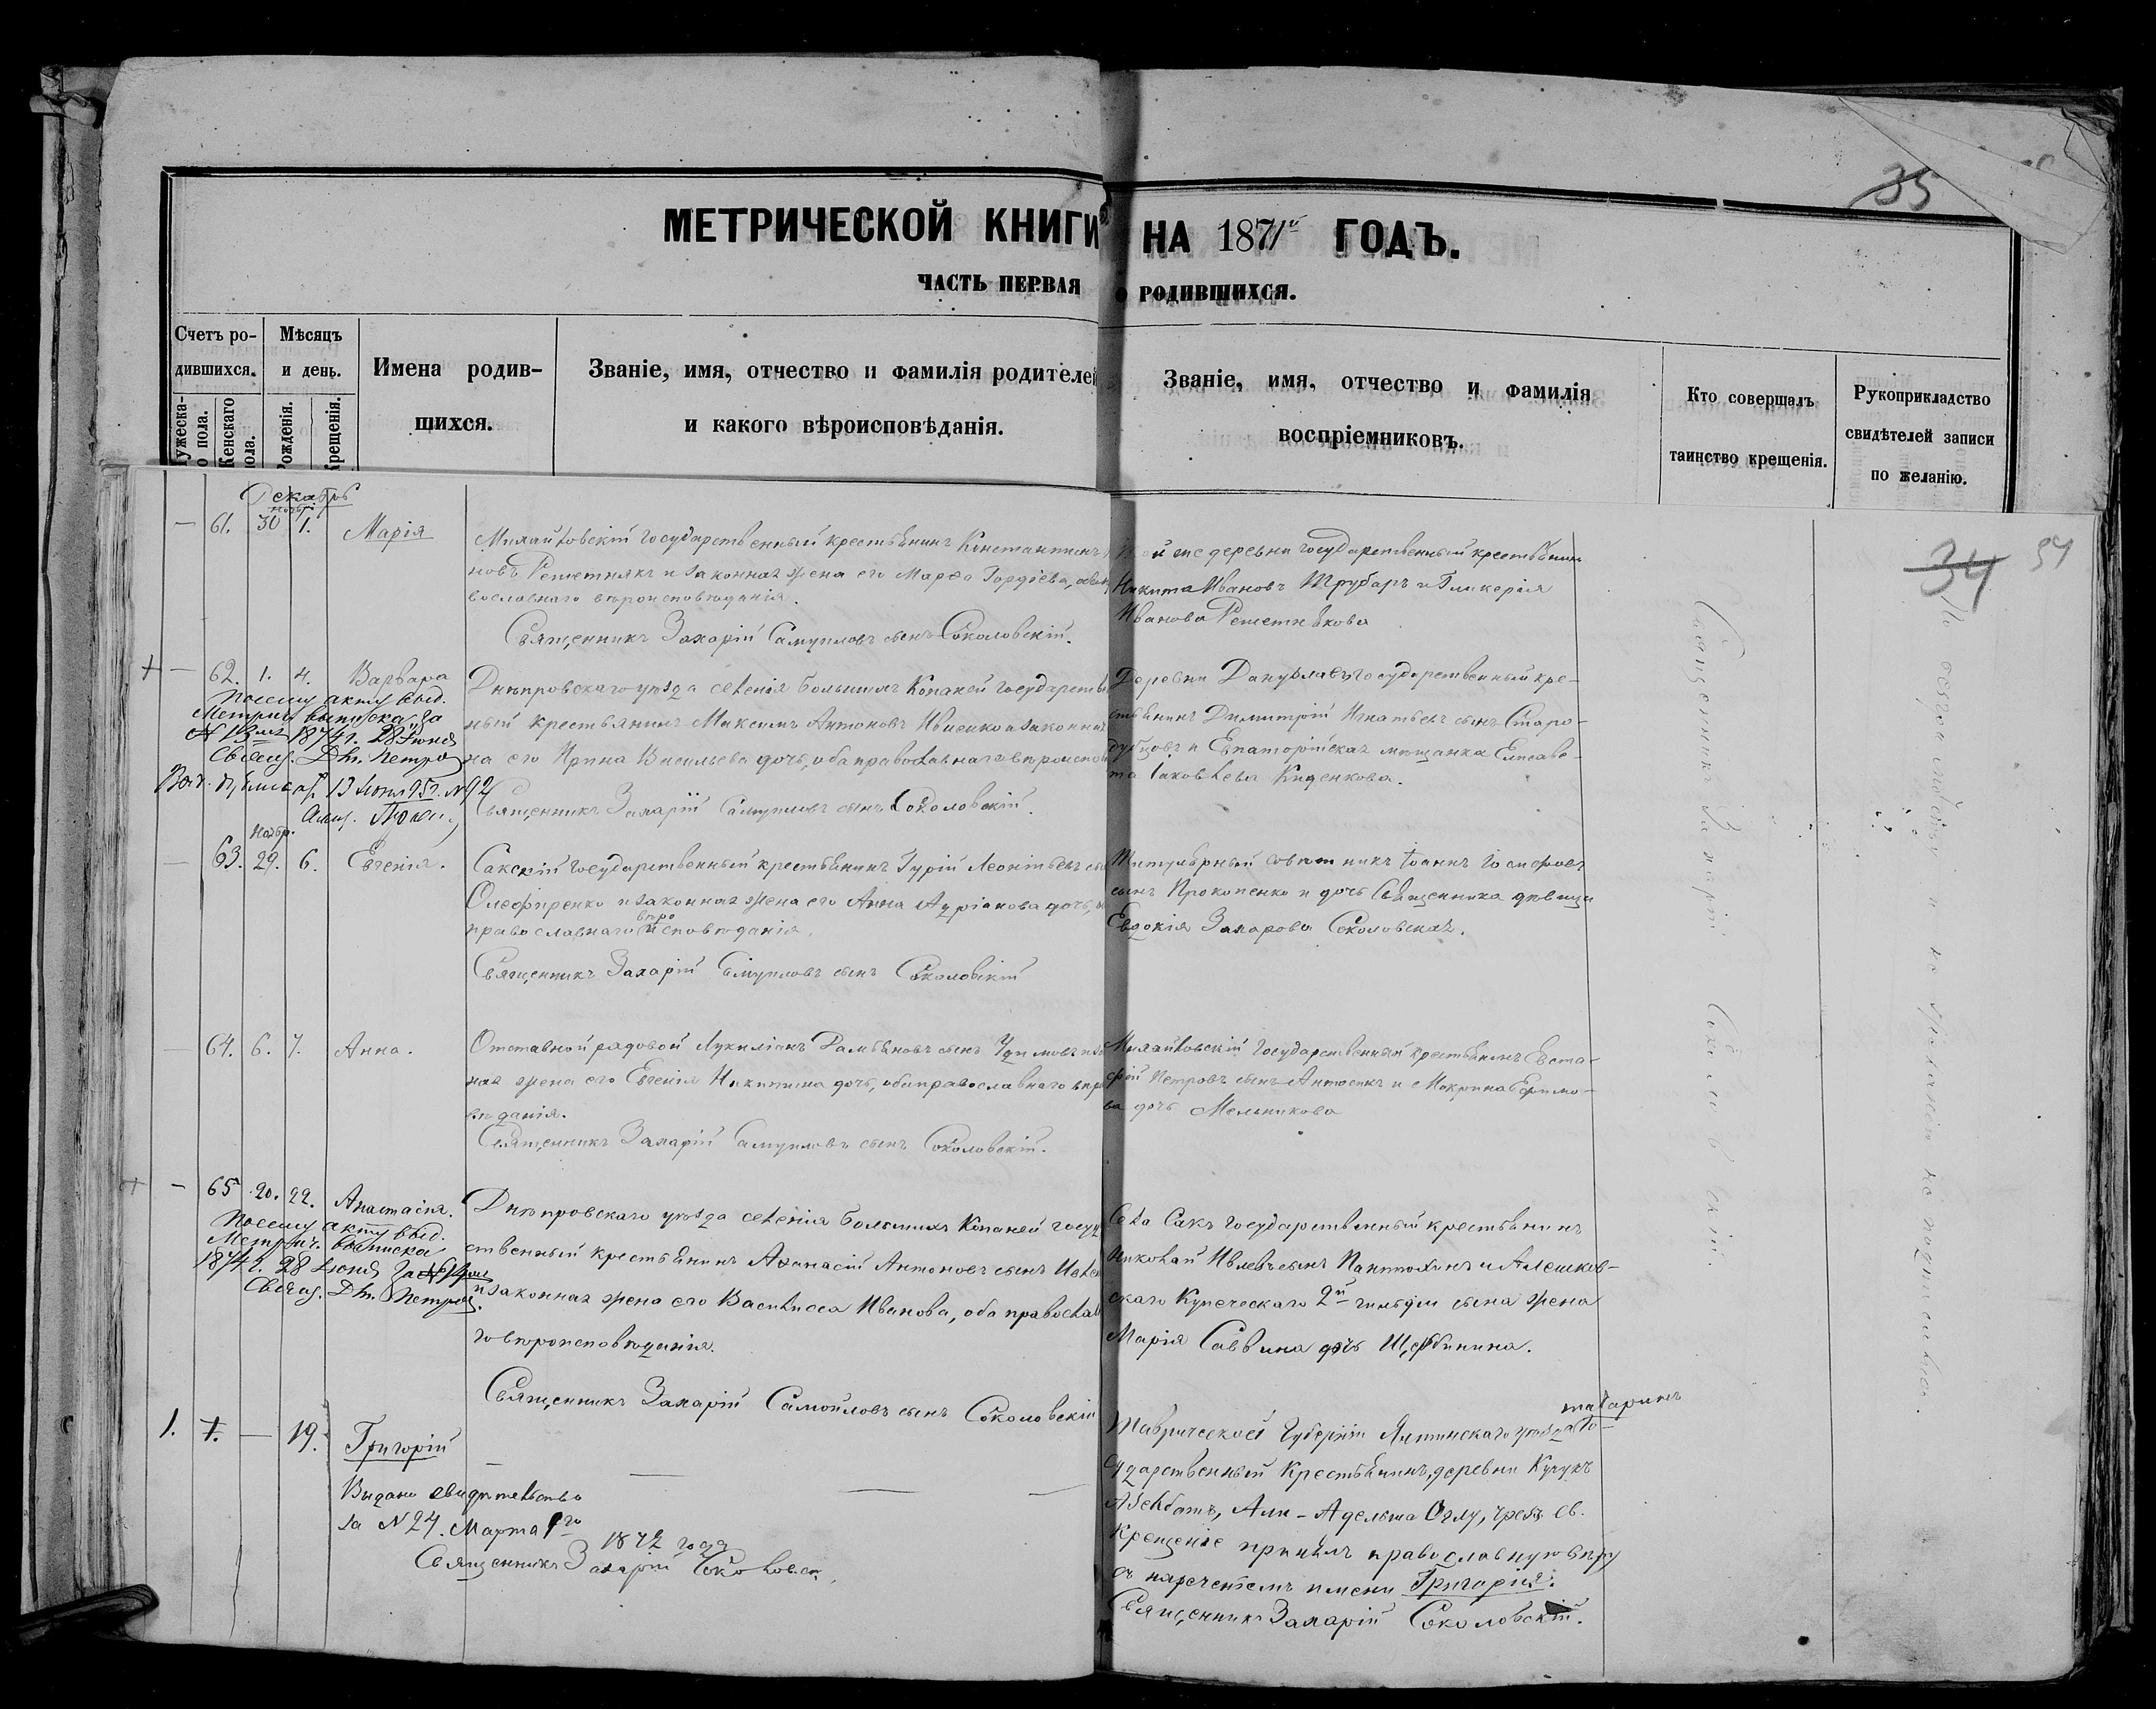 35
МЕТРИЧЕСКОЙ КНИГИ НА 1871й ГОДЪ.
ЧАСТЬ ПЕРВАЯ О РОДИВШИХСЯ.
Счетъ ро-
дившихся.
Мѣсяцъ
и день.
Имена родив-
шихся.
Званіе, имя, отчество и фамилія родителей
и какого вѣроисповѣданія.
Званіе, имя, отчество и фамилія
воспріемниковъ.
Кто совершалъ
таинство крещенія.
Рукоприкладство
свидѣтелей записи
по желанію.
34
Декабрь
— 61. 30 ноябр. 1. Марія
Михайловскій государственный крестьянинъ Константинъ
новъ Решетнякъ и законная жена его Марѳа Гордіева,
вославнаго вѣроисповѣданія.
Священникъ Захарій Самуиловъ сынъ Соколовскій.
й же деревни государственный крестьянинъ
Никита Ивановъ Трубаръ и Гликерія
Иванова Решетнякова
+ — 62. 1. 4. Варвара
По сему акту выд.
Метрич выписка за
1874г. 28 Іюня
Свящ. Дм. Петров
13 N 92
Днѣпровскаго уѣзда селенія Большихъ Копаней государств
ный крестьянинъ Максимъ Антоновъ и законная
на его Ирина Васильева дочь, оба православнаго вѣроиспов
Священникъ Захарій Самуиловъ сынъ Соколовскій.
Деревни государственный кре-
стьянинъ Димитрій Игнатьевъ сынъ Старо-
дубцовъ и Евпаторійская мѣщанка Елисаве-
та Іаковлева Киденкова.
— 63. Ноябр. 29. 6. Евгенія.
Сакскій государственный крестьянинъ Гурій Леонтьевъ
Олефиренко и законная жена его Анна Адріанова дочь,
православнаго вѣроисповѣданія.
Священникъ Захарій Самуиловъ сынъ Соколовскій
Титулярный совѣтникъ Іоаннъ Іосифовъ
сынъ Прокопенко и дочь Священника дѣвица
Евдокія Захарова Соколовская.
— 64. 6. 7. Анна.
Отставной рядовой Лукиліанъ сынъ
ная жена его Евгенія Никитина дочь, оба православнаго вѣро
вѣданія.
Священникъ Захарій Самуиловъ сынъ Соколовскій.
Михайловскій государственный крестьянинъ Евста-
фій Петровъ сынъ Антосикъ и Макрина Ефимо-
ва дочь Мельникова
+ — 65 20. 22. Анастасія.
По сему акту выд.
Метрич. выписка
1874г. 28 Іюня за
Свящ. Дм. Петров
Днѣпровскаго уѣзда селенія Большихъ Копаней госуд
ственный крестьянинъ Аѳанасій Антоновъ сынъ
и законная жена его Василисса Иванова, оба православ
го вѣроисповѣданія.
Священникъ Захарій Самойловъ сынъ Соколовскій
Села Сакъ государственный крестьянинъ
Николай сынъ Пантюхинъ и Алешков-
скаго Купеческаго 2й гильдіи сына жена
Марія Саввина дочь Щербинина.
1. — 19. Григорій
Выдано свидѣтельство
за N 24. Марта 1го
1872 года
Священникъ Захарій Соколовск.
татаринъ
Таврической Губерніи Ялтинскаго уѣзда Го-
сударственный Крестьянинъ, деревни Кучукъ
Али - Адельша Оглу, чрезъ св.
Крещеніе принялъ православную вѣру
съ нареченіемъ имени Григорія.
Священникъ Захарій Соколовскій.
Священникъ Захарій Соколовскій.